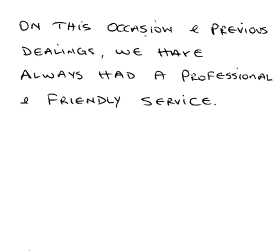 ON THIS OCCASION & PREVIOUS
DEALINGS, WE HAVE
ALWAYS HAD A PROFESSIONAL
& FRIENDLY SERVICE.